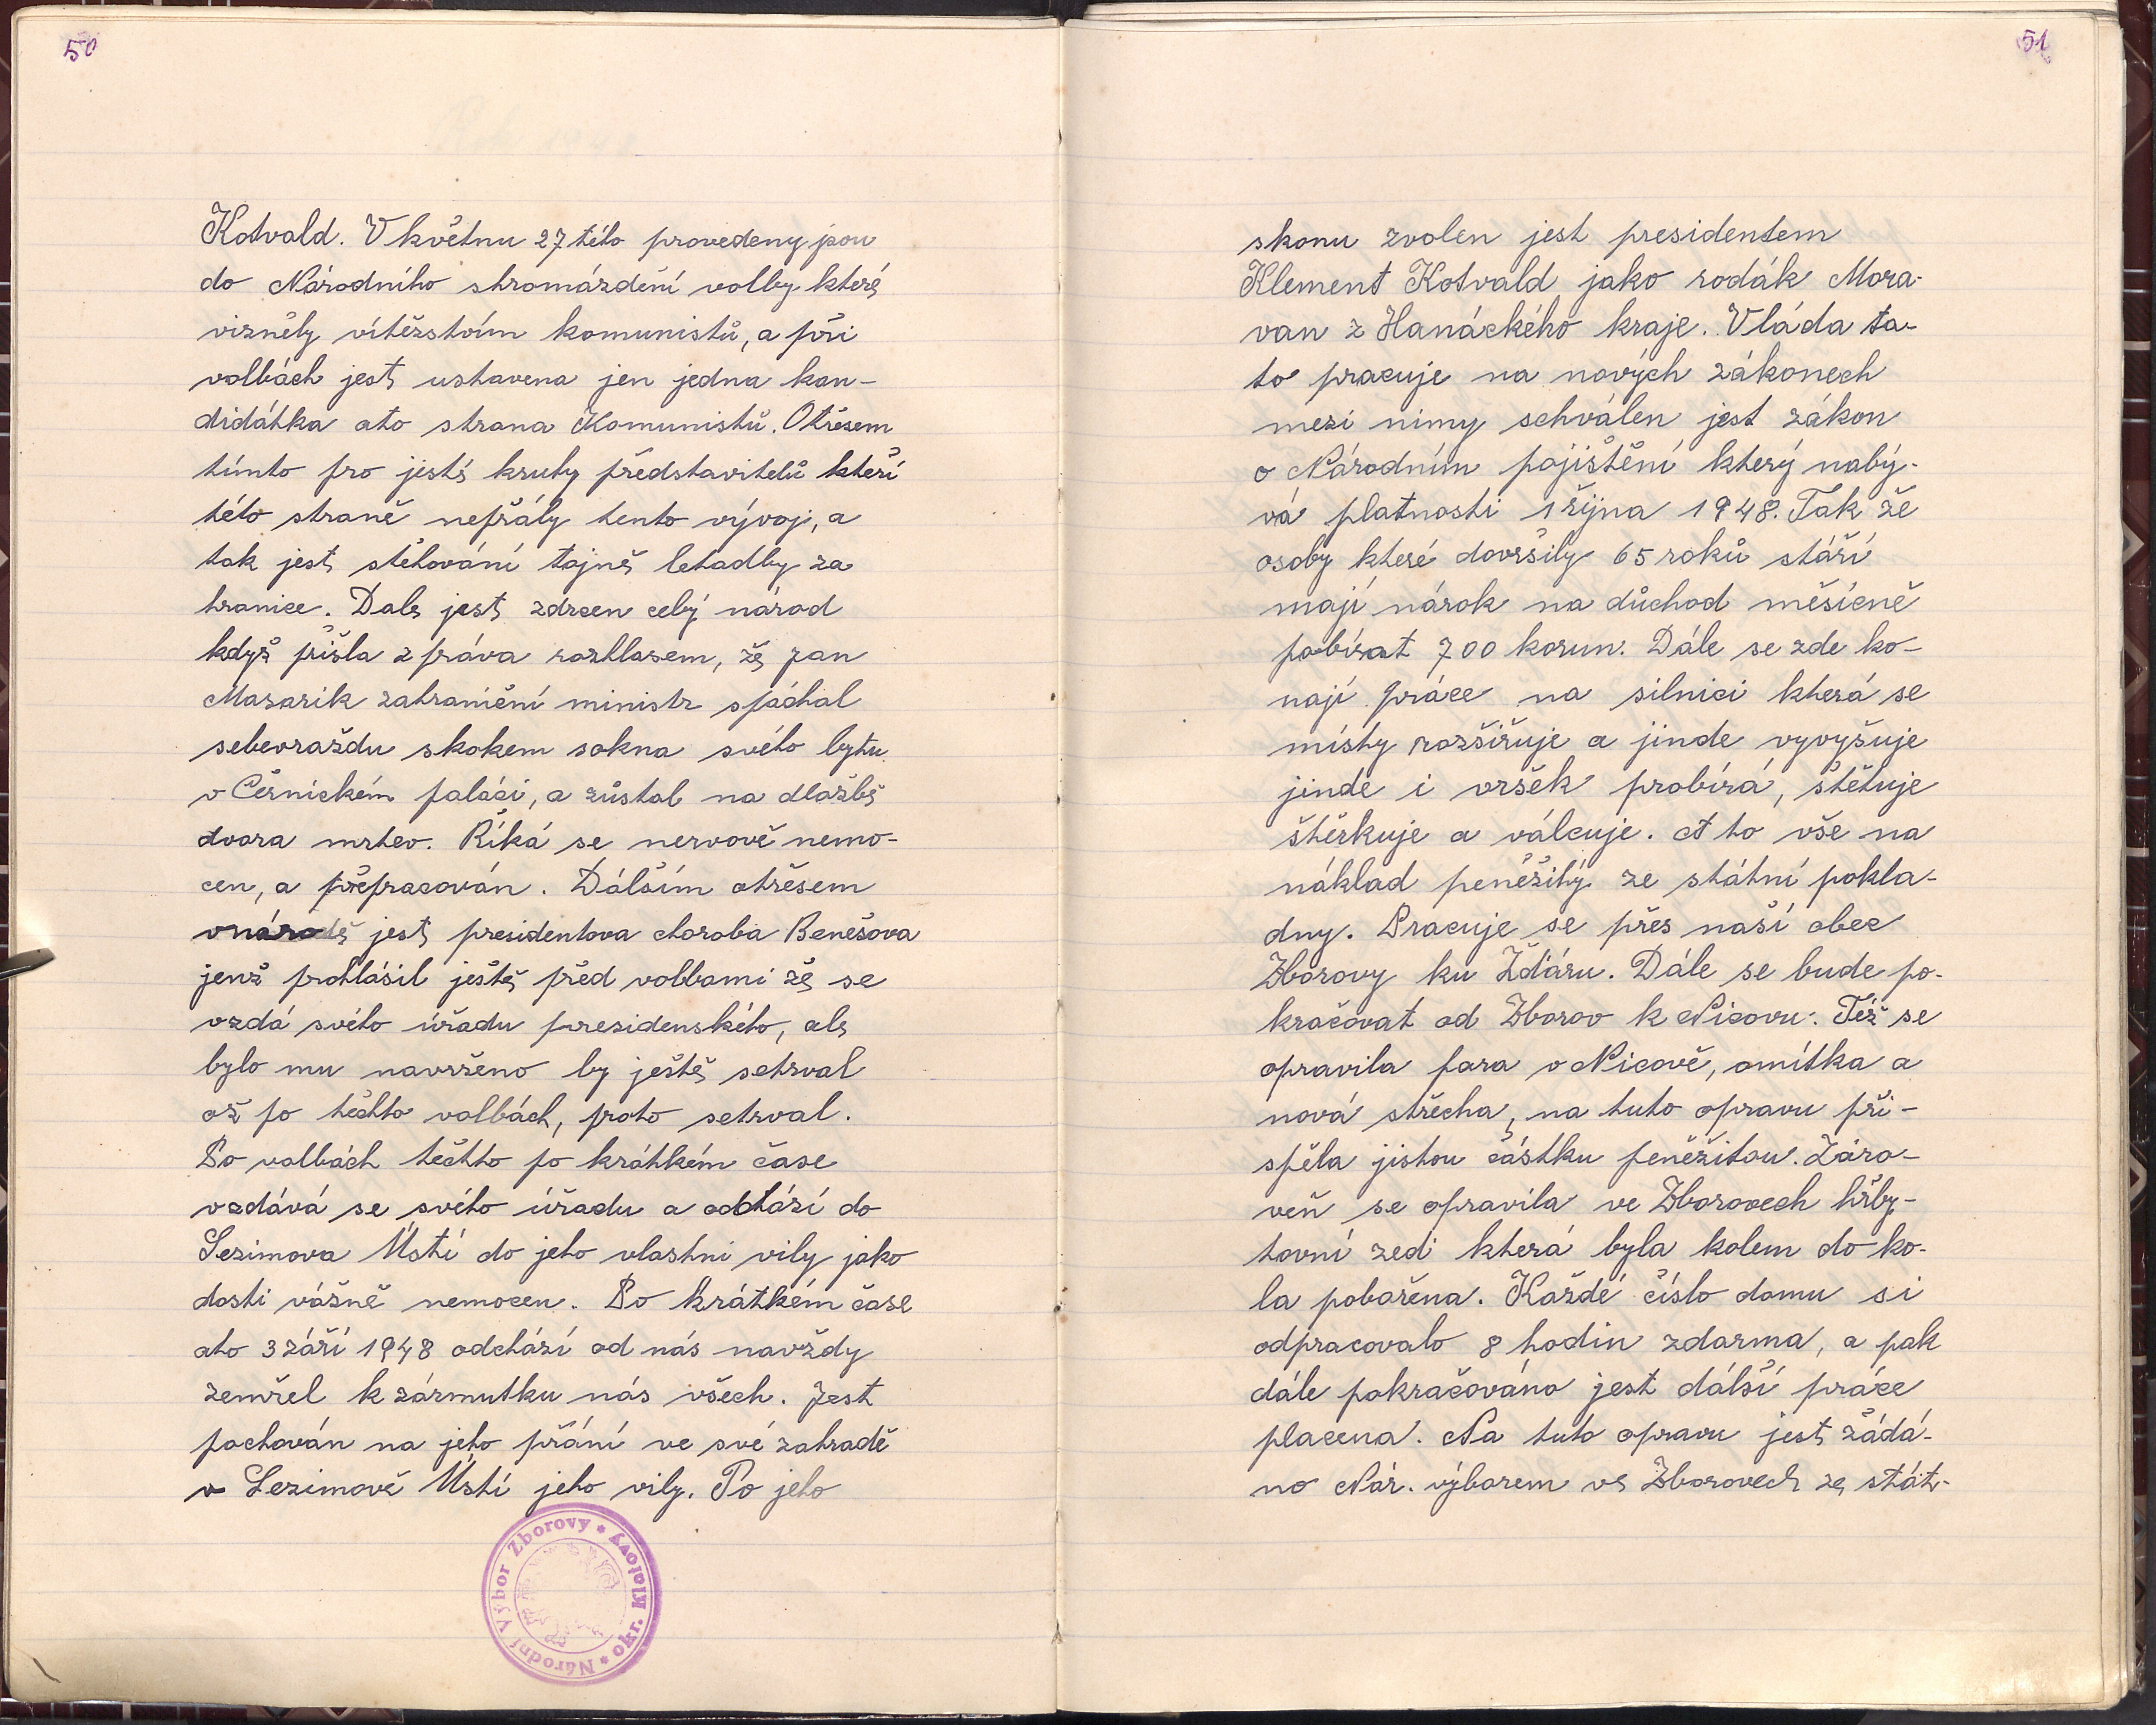 50
Kotvald. V květnu 27 této provedeny jsou
do Národního shromázdění volby které
vizněly vítězstvím komunistů, a při
volbách jest ustavena jen jedna kan-
didátka ato strana Komunistů. Otřesem
tímto pro jisté kruhy představitelů kteří
této straně nepřály tento vývoj, a
tak jest stěhování tajně letadly za
hranice. Dale jest zdrcen celý národ
když přišla zpráva rozhlasem, že Jan
Mazarik zahraniční ministr spáchal
sebevraždu skokem sokna svého bytu
v Černickém paláci, a zůstal na dlažbě
dvora mrtev. Říká se nervově nemo-
cen, a přepracován. Dálším otřesem
vnárodě jest presidentova choroba Benešova
jenž prohlásil ještě před volbami že se
vzdá svého úřadu prezidenského, ale
bylo mu navrženo by ještě setrval
až po těchto volbách, proto setrval.
Po volbách těchto po krátkém čase
vzdává se svého úřadu a odchází do
Sezimova Ústí do jeho vlastni vily jako
dosti vážně nemocen. Po krátkém čase
ato 3 září 1948 odchází od nás navždy
zemřel k zármutku nás všech. Jest
pochován na jeho přání ve své zahradě
v Sezimově Ústí jeho vily. Po jeho
Národní Výbor Zborovy * okr. Klatovy *
51
skonu zvolen jest presidentem
Klement Kotvald jako rodák Mora-
van z Hanáckého kraje. Vláda ta-
to pracuje na nových zákonech
mezi nimy schválen jest zákon
o Národním pojištění který nabý-
vá platnosti 1 října 1948. Tak že
osoby které dovršily 65 roků stáří
mají nárok na důchod měsícně
pobírat 700 korun. Dále se zde ko-
nají práce na silnici která se
místy rozšiřuje a jinde vyvyšuje
jinde i vršek probírá, štětuje
štěrkuje a válcuje. A to vše na
náklad peněžitý ze státní pokla-
dny. Pracuje se přes naší obec
Zborovy ku Žďáru. Dále se bude po-
kračovat od Zborov k Nicovu. Též se
opravila fara v Nicově, omítka a
nová střecha, na tuto opravu při-
spěla jistou částku peněžitou. Záro-
veň se opravila ve Zborovech hřby-
tovní zeď která byla kolem do ko-
la pobořena. Každé číslo domu si
odpracovalo 8 hodin zdarma, a pak
dále pokračováno jest dálší práce
placena. Na tuto opravu jest žádá-
no Nár. výborem ve Zborovech ze stát-